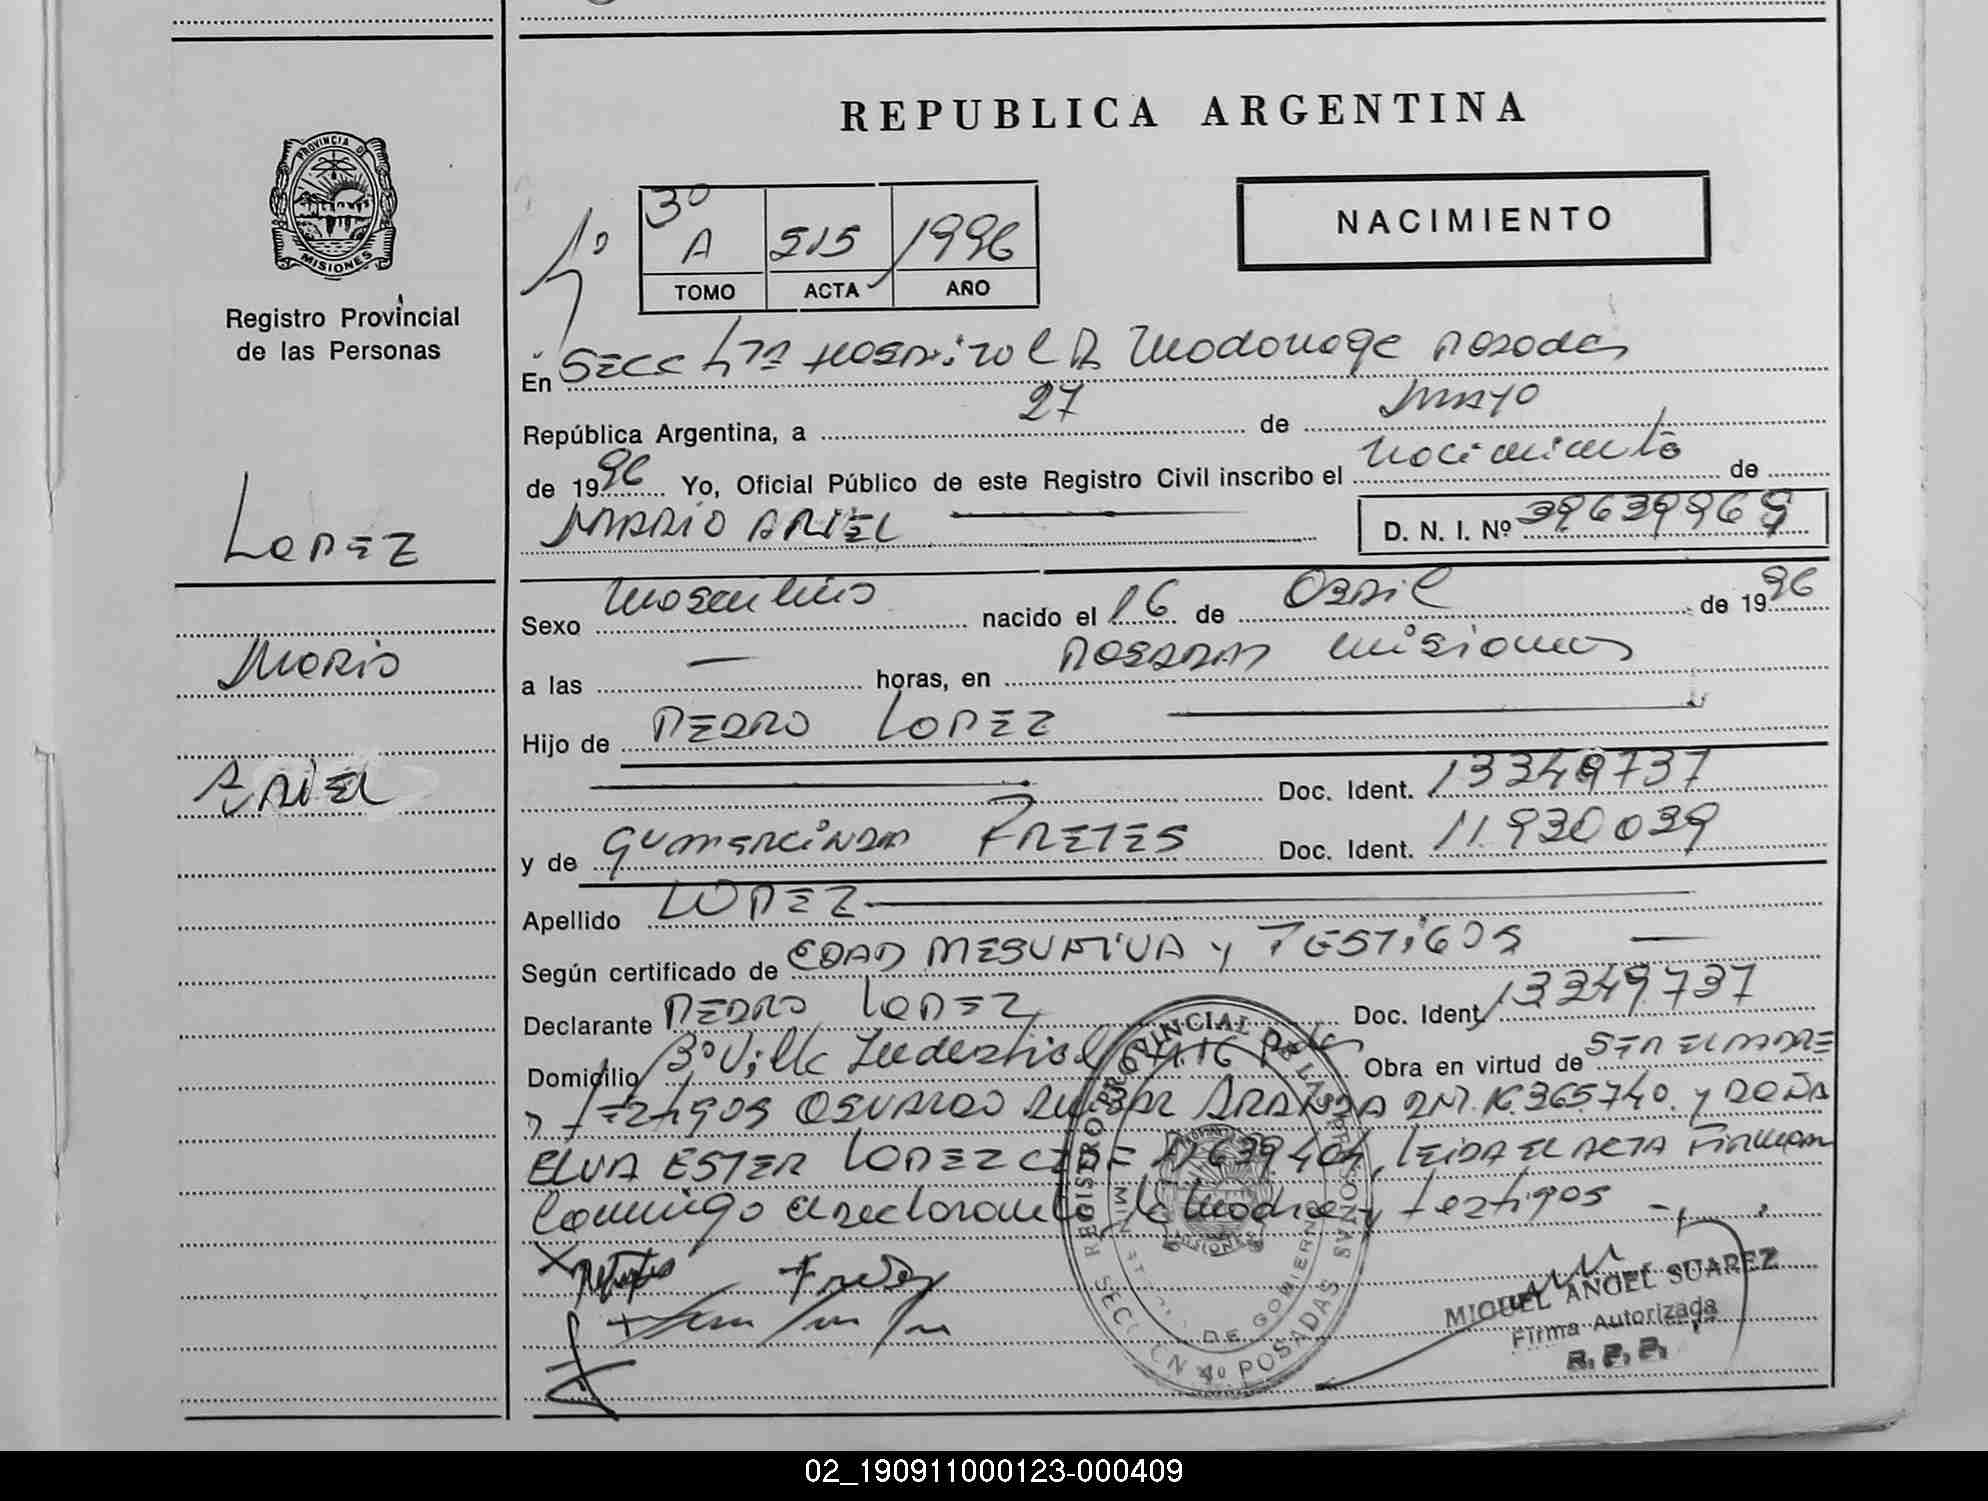 REPUBLICA ARGENTINA
PROVINCIA D
MISIONES
Registro Provincial
de las Personas
4º
3º
A 515 1996
TOMO ACTA AÑO
NACIMIENTO
En SECC 4ta Hospital R Madariaga Posadas
República Argentina, a 27 de MAYO
de 1996 Yo, Oficial Público de este Registro Civil inscribo el Nacimiento de
MARIO ARIEL
D. N. I. Nº 39639969
LOPEZ
Mario
ARIEL
Sexo Masculino nacido el 16 de Abril de 1996
a las — horas, en POSADAS Misiones
Hijo de PEDRO LOPEZ
Doc. Ident. 13349737
y de GUMERCINDA FRETES Doc. Ident. 11.930039
Apellido LOPEZ
Según certificado de EDAD PRESUNTIVA y TESTIGOS —
Declarante PEDRO LOPEZ Doc. Ident. 13349737
Domicilio Bº Villa Industrial Obra en virtud de SER EL PADRE
y testigos OSVALDO ARANDA DNI. 16.365.740. y DOÑA
ELVA ESTER LOPEZ LEIDA EL ACTA FIRMAN
Conmigo el declarante la Madre y testigos
REGISTRO PROVINCIAL DE LAS PERSONAS
DE GOBIERNO
MISIONES
SECCION 4º POSADAS
MIGUEL ANGEL SUAREZ
Firma Autorizada
R. P. P.
02_190911000123-000409